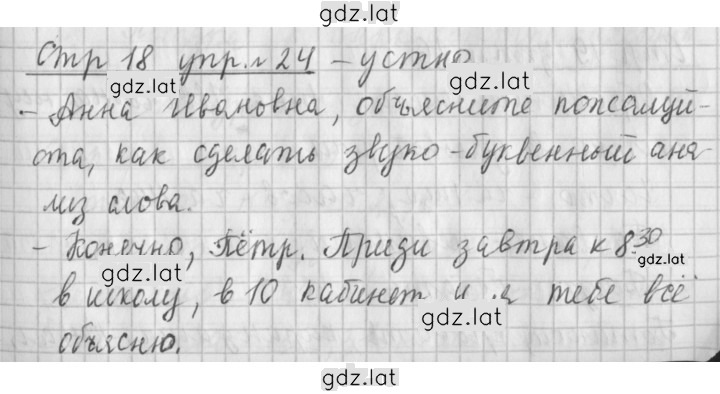 gdz.lat
Стр 18 упр. № 24 - устно
gdz.lat
- Анна Ивановна, объясните пожалуй-
ста, как сделать звуко-буквенный ана-
лиз слова.
- Конечно, Пётр. Приди завтра к 8 30
gdz.lat
gdz.lat
в школу, в 10 кабинет и я тебе всё
gdz.lat
объясню.
gdz.lat